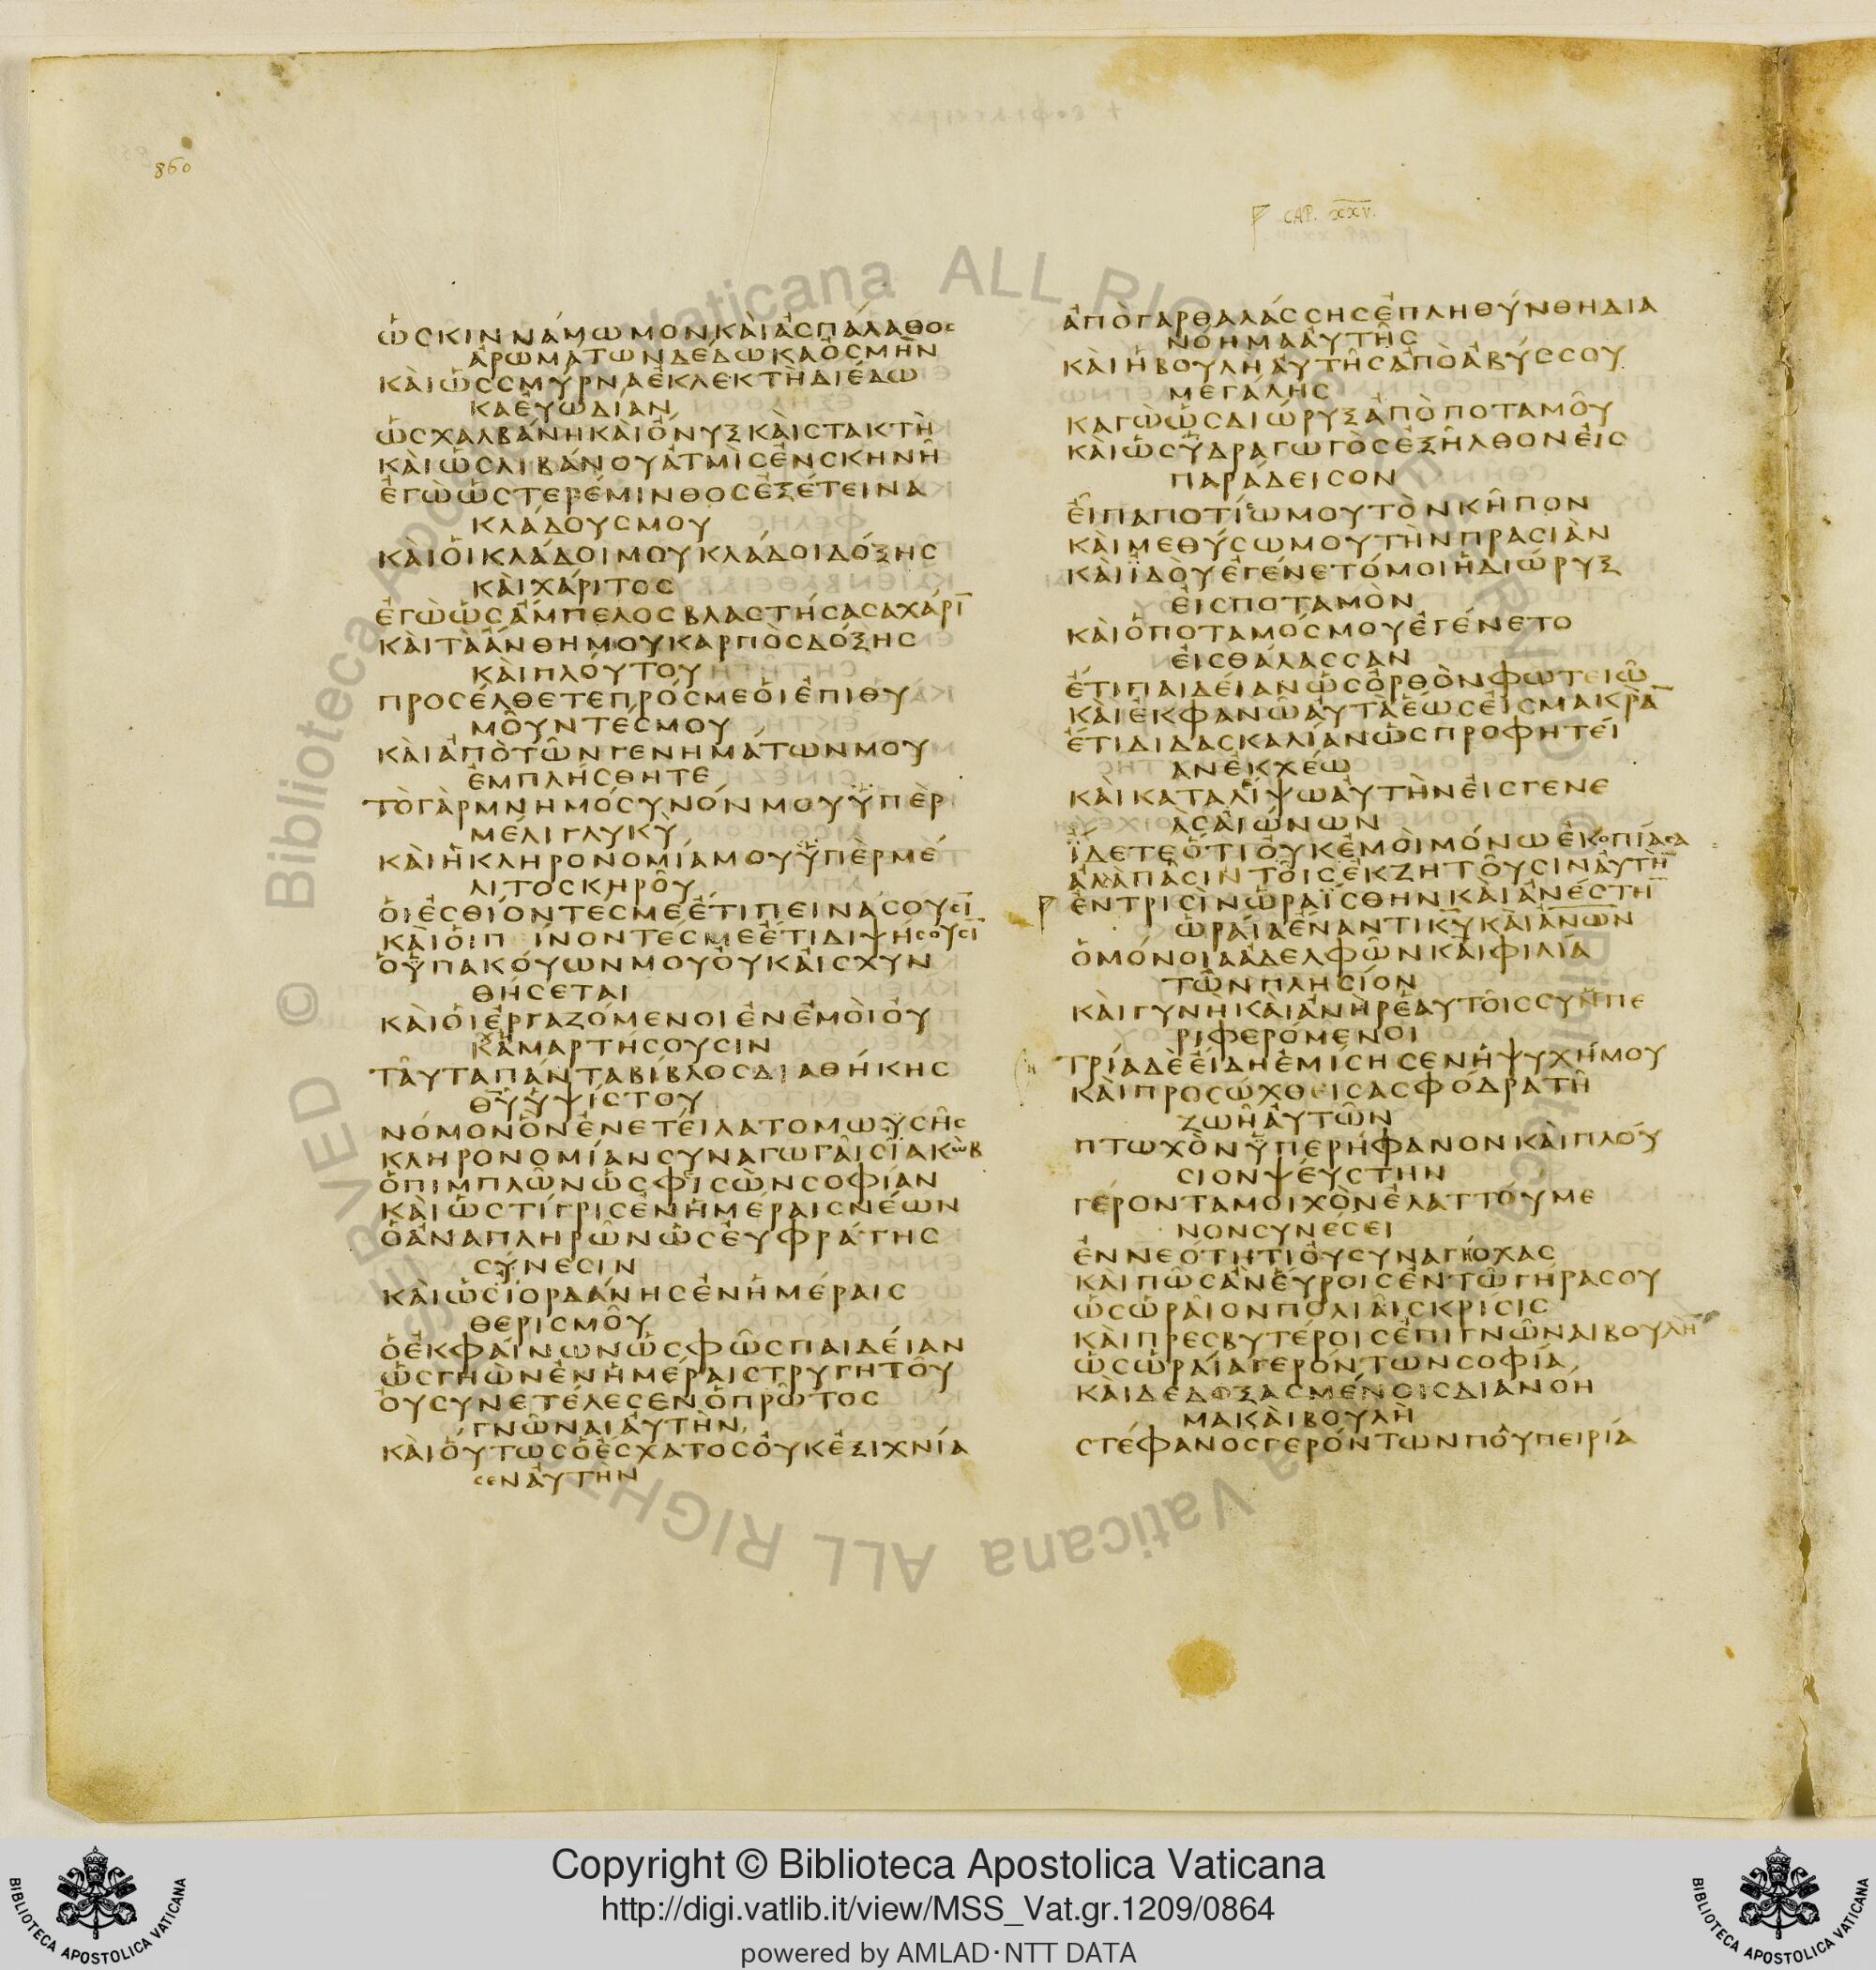 860
CAP. XXV.
ὡς κιννάμωμον καὶ ἀσπάλαθος
ἀρωμάτων δέδωκα ὀσμὴν
καὶ ὡς σμύρνα ἐκλεκτὴ διέδω
κα εὐωδίαν
ὡς χαλβάνη καὶ ὄνυξ καὶ στακτὴ
καὶ ὡς λιβάνου ἀτμὶς ἐν σκηνῇ
ἐγὼ ὡς τερέμινθος ἐξέτεινα
κλάδους μου
καὶ οἱ κλάδοι μου κλάδοι δόξης
καὶ χάριτος
ἐγὼ ὡς ἄμπελος βλαστήσασα χάρῑ
καὶ τὰ ἄνθη μου καρπὸς δόξης
καὶ πλούτου
προσέλθετε πρός με οἱ ἐπιθυ
μοῦντές μου
καὶ ἀπὸ τῶν γενημάτων μου
ἐμπλήσθητε
τὸ γὰρ μνημόσυνόν μου ὑπὲρ
μέλι γλυκὺ
καὶ ἡ κληρονομία μου ὑπὲρ μέ
λιτος κηροῦ
οἱ ἐσθίοντές με ἔτι πεινάσουσῑ
καὶ οἱ π ίνοντές με ἔτι διψήσουσῑ
ὁ ὑπακούων μου οὐκ αἰσχυν
θήσεται
καὶ οἱ ἐργαζόμενοι ἐν ἐμοὶ οὐ
χ ἁμαρτήσουσιν
ταῦτα πάντα βίβλος διαθήκης
θ̅υ̅ ὑψίστου
νόμον ὃν ἐνετείλατο μωυσῆς
κληρονομίαν συναγωγαῖς ϊακὼβ
ὁ πιμπλῶν ὡς φισὼν σοφίαν
καὶ ὡς τίγρις ἐν ἡμέραις νέων
ὁ ἀναπληρῶν ὡς εὐφράτης
σύνεσιν
καὶ ὡς ιορδάνης ἐν ἡμέραις
θερισμοῦ
ὁ ἐκφαίνων ὡς φῶς παιδείαν
ὡς γηὼν ἐν ἡμέραις τρυγητοῦ
οὐ συνετέλεσεν ὁ πρῶτος
γνῶναι αὐτὴν
καὶ οὕτως ὁ ἔσχατος οὐκ ἐξιχνία
σεν αὐτὴν
ἀπὸ γὰρ θαλάσσης ἐπληθύνθη δια
νόημα αὐτῆς
καὶ ἡ βουλὴ αὐτῆς ἀπὸ ἀβύσσου
μεγάλης
καγὼ ὡς διώρυξ ἀπὸ ποταμοῦ
καὶ ὡς ὑδραγωγὸς ἐξῆλθον εἰς
παράδεισον
εἶπα ποτιῶ μου τὸν κῆπον
καὶ μεθύσω μου τὴν πρασιὰν
καὶ ϊδοὺ ἐγένετό μοι ἡ διώρυξ
εἰς ποταμὸν
καὶ ὁ ποταμός μου ἐγένετο
εἰς θάλασσαν
ἔτι παιδείαν ὡς ὄρθὸν φωτειῶ
καὶ ἐκφανῶ αὐτὰ ἕως εἰς μακρὰ̅
ἔτι διδασκαλίαν ὡς προφητεί
αν ἐκχέω
καὶ καταλείψω αὐτὴν εἰς γενε
ὰς αἰώνων
ἴδετε ὅτι οὐκ ἐμοὶ μόνω ἐκοπίασα
ἀλλὰ πᾶσιν τοῖς ἐκζητοῦσιν αὐτὴ̅
ἐν τρισὶν ὡραΐσθην καὶ ἀνέστη̅
ὡραία ἔναντι κ̅υ̅ καὶ ἀ̅ν̅ω̅ν̅
ὁμόνοια ἀδελφῶν καὶ φιλία
τῶν πλησίον
καὶ γυνὴ καὶ ἀνὴρ ἑαυτοῖς συμπε
ριφερόμενοι
τρία δὲ εἴδη ἐμίσησεν ἡ ψυχή μου
καὶ προσώχθεισα σφόδρα τῆ
ζωῆ αὐτῶν
πτωχὸν ὑπερήφανον καὶ πλού
σιον ψεύστην
γέροντα μοιχὸν ἐλαττούμε
νον συνέσει
ἐν νεότητι οὐ συναγιόχας
καὶ πῶς ἂν εὕροις ἐν τῶ γήρα σου
ὡς ὡραῖον πολιαῖς κρίσις
καὶ πρεσβυτέροις ἐπιγνῶναι βουλὴ̅
ὡς ὡραία γερόντων σοφία
καὶ δεδοξασμένοις διανόη
μα καὶ βουλὴ
στέφανος γερόντων πολυπειρία
Copyright © Biblioteca Apostolica Vaticana
http://digi.vatlib.it/view/MSS_Vat.gr.1209/0864
powered by AMLAD·NTT DATA